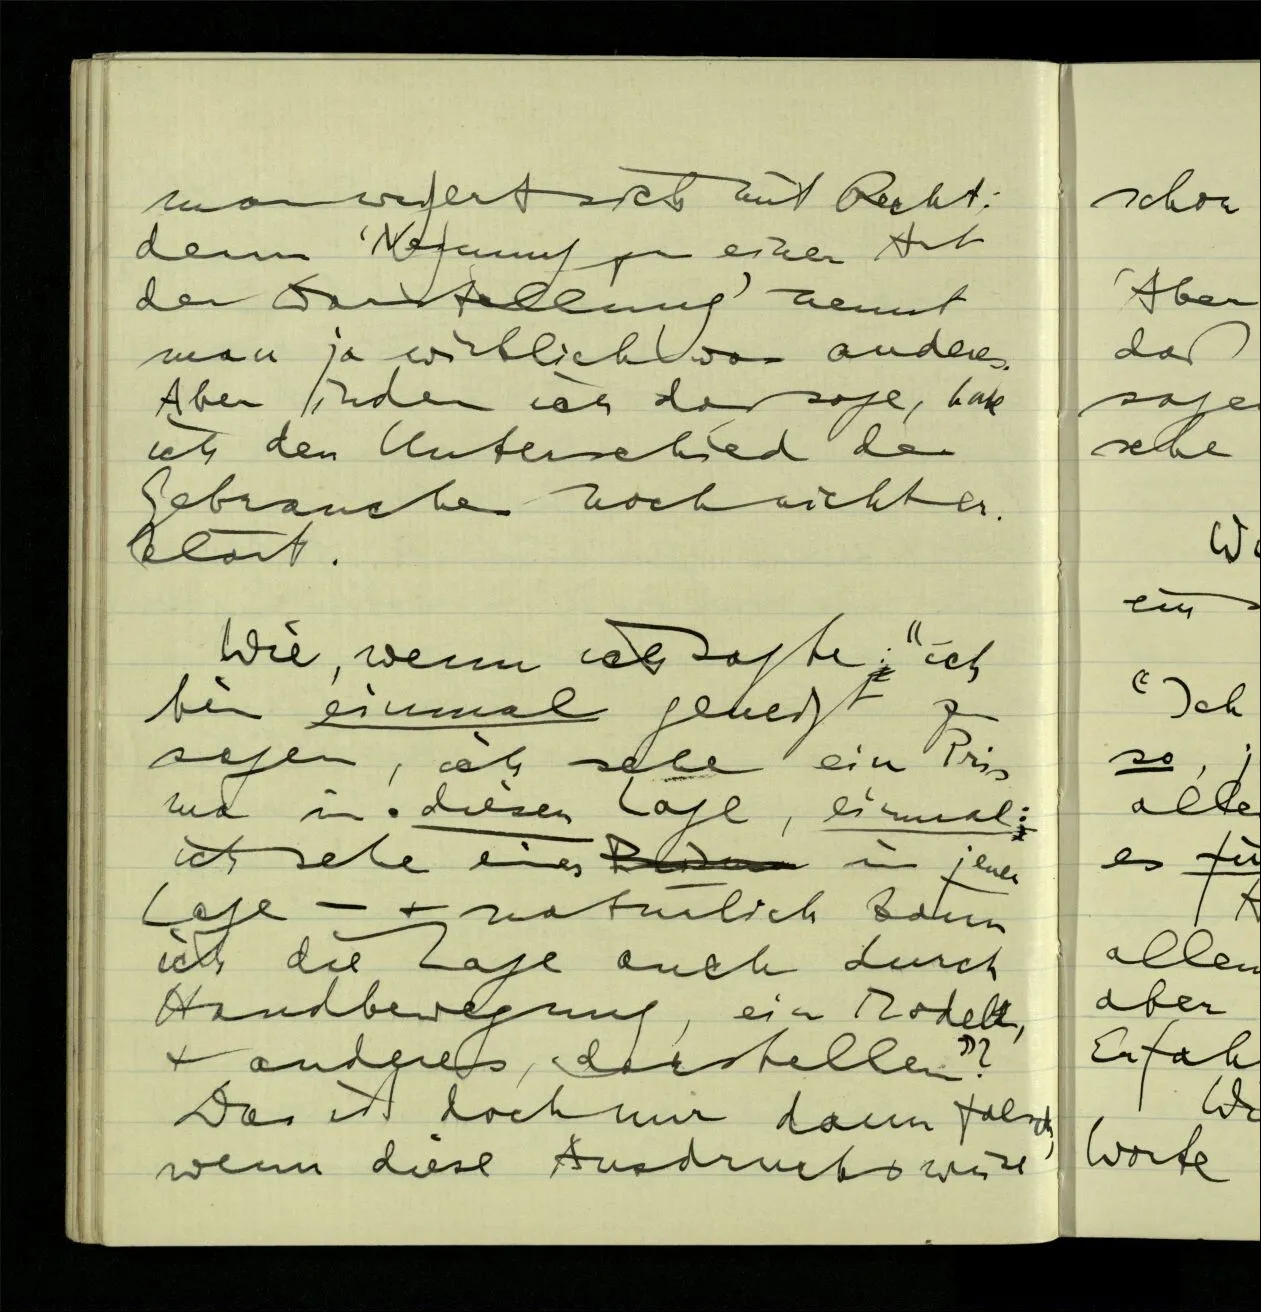 man weigert sich mit Recht:
denn 'Neigung zu einer Art
der Darstellung' nennt
man ja wirklich was anderes.
Aber indem ich das sage, habe
ich den Unterschied der
Gebrauche noch nicht er-
klärt.
Wie, wenn ich sagte: "ich
bin einmal geneigt zu
sagen, ich sehe ein Pris
ma in dieser Lage, einmal:
ich sehe eines in jener
Lage — + natürlich kann
ich die Lage auch durch
Handbewegung, ein Modell,
+ anderes, darstellen"?
Das ist doch nur dann falsch,
wenn diese Ausdrucksweise
schon
'Aber
das
sagen
sehe
ein
"Ich
so, j
alle
es fü
allen
aber
Erfah
Worte